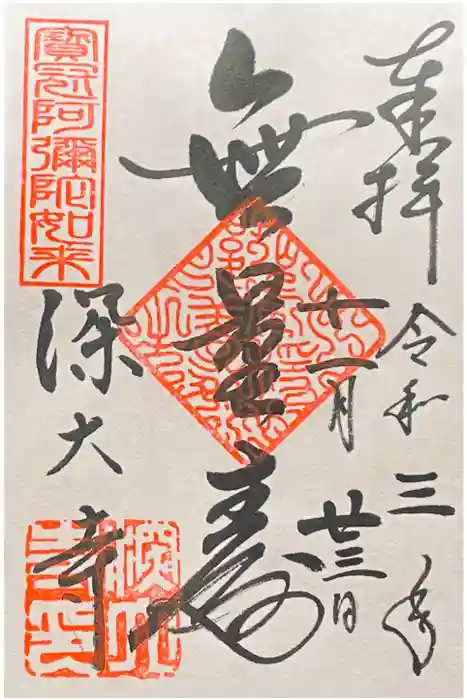 奉拝
令和三年
十一月廿三日
無量寿
寶冠阿彌陀如来
深大寺